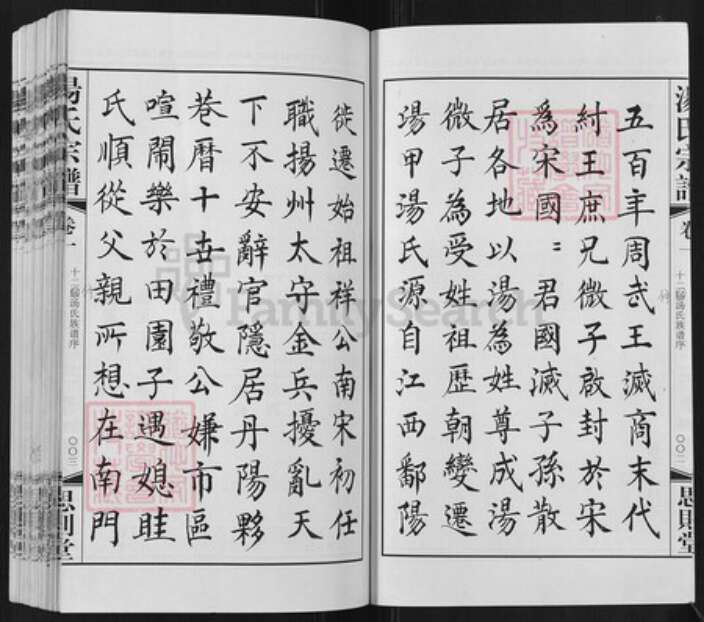 五百年周武王滅商末代
紂王庶兄微子啟封於宋
爲宋國〻君國滅子孫散
居各地以湯為姓尊成湯
微子為受姓祖歷朝變遷
湯甲湯氏源自江西鄱陽
徙遷始祖祥公南宋初任
職揚州太守金兵擾亂天
下不安辭官隱居丹陽夥
巷曆十世禮敬公嫌市區
喧鬧樂於田園子遇媳眭
氏順從父親所想在南門
湯氏宗譜
卷一
〇〇二
思則堂
湯氏宗譜
卷一
十二修湯氏族譜序
〇〇三
思則堂
FamilySearch